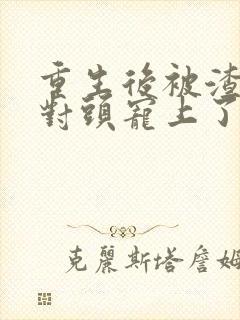 重生後被渣
對頭寵上了
克麗斯塔詹姆